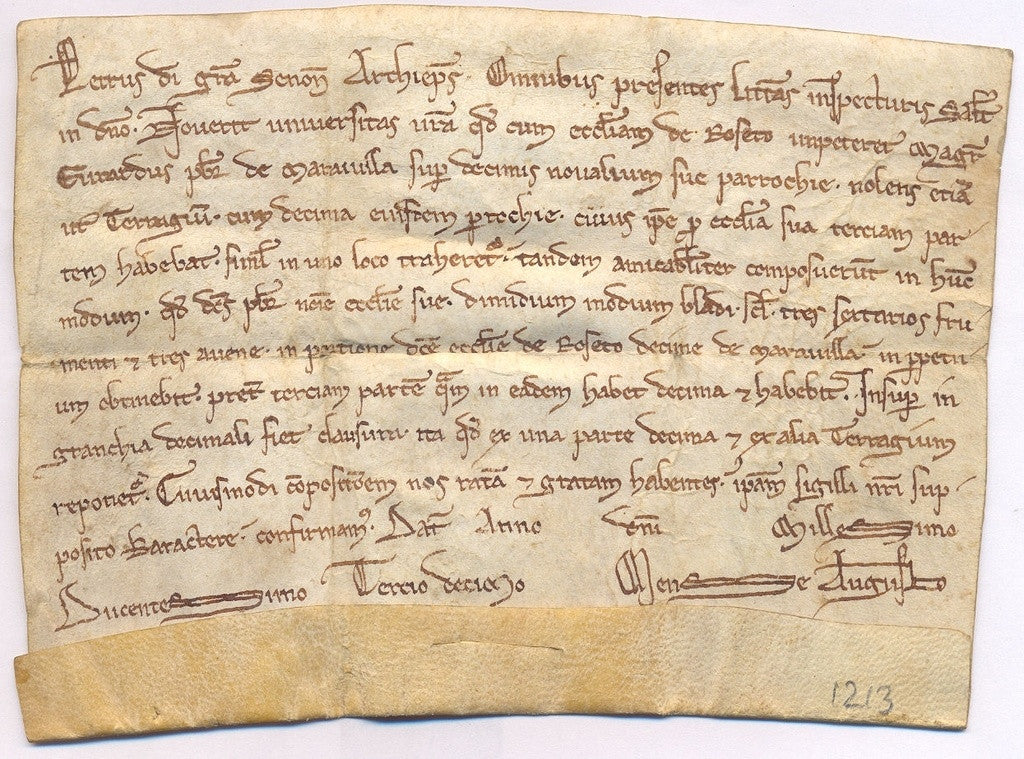 Petrus di gra Senon Archieps. Omnibus presentes litteras inspecturis salt
in dno. Noverit universitas vra qd cum eccliam de Roseto impeteret Magr
Giraudus pbr de Maravilla sup decimis novalium sue parrochie. nolens etia
ut Terragiu. cum decima eiusdem prochie. cuius ipe p ecclia sua terciam par
tem habebat. simul in uno loco traheret. tandem amicabiliter composuerut in huc
modum. qd dcs pbr noie ecclie sue. dimidium modium bladi. scl. tres sextarios fru
menti & tres avene. in portione dce ecclie de Roseto decime de Maravilla. in ppetu
um obtinebit. pret terciam parte qam in eadem habet decima & habebit. Insup in
granchia decimali fiet clausura ita qd ex una parte decima & ex alia Terragium
reponet. Cuiusmodi compositoem nos rata & gratam habentes. ipam sigilli nri sup
posito karactere. confirmam. Dat Anno dni Millesimo
Ducentesimo Tercio decimo Mense Augusto
1213